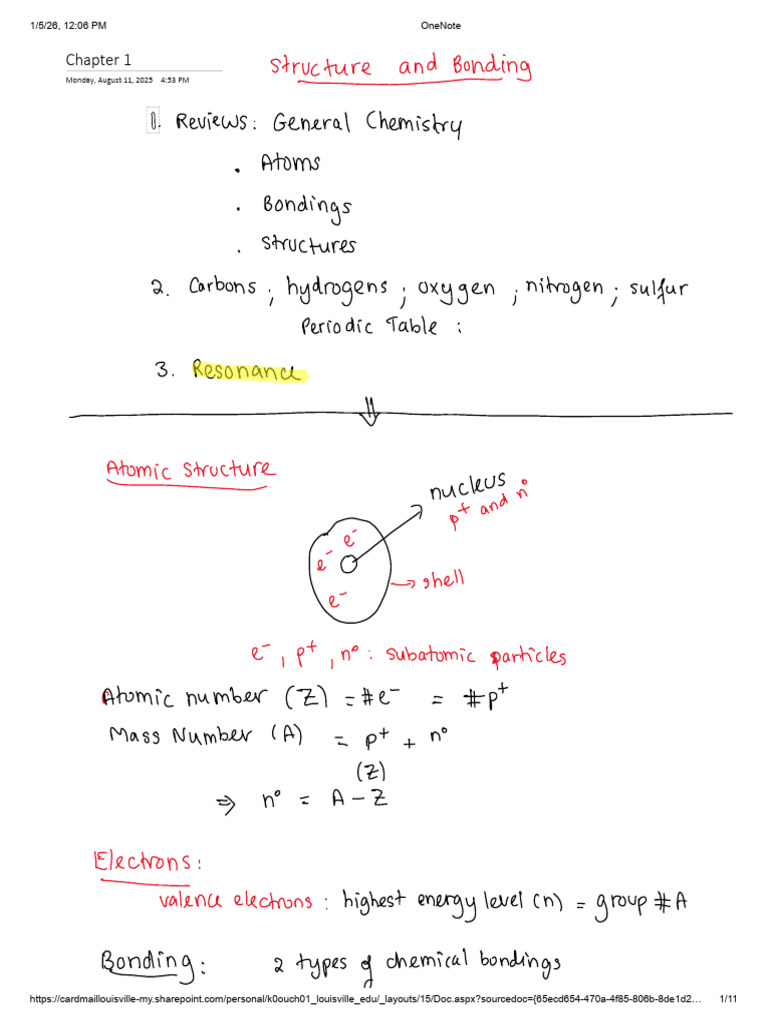 1/5/26, 12:06 PM OneNote
Chapter 1
Structure and Bonding
Monday, August 11, 2025 4:53 PM
1. Reviews: General Chemistry
• Atoms
• Bondings
• Structures
2. Carbons ; hydrogens ; oxygen ; nitrogen ; sulfur
Periodic Table :
3. Resonance
⇓
Atomic Structure
nucleus
p⁺ and n°
e⁻
e⁻
e⁻
→ shell
e⁻ , p⁺ , n° : subatomic particles
Atomic number (Z) = #e⁻ = #p⁺
Mass Number (A) = p⁺ + n°
(Z)
⇒ n° = A − Z
Electrons:
valence electrons : highest energy level (n) = group # A
Bonding: 2 types of chemical bondings
https://cardmaillouisville-my.sharepoint.com/personal/k0ouch01_louisville_edu/_layouts/15/Doc.aspx?sourcedoc={65ecd654-470a-4f85-806b-8de1d2… 1/11